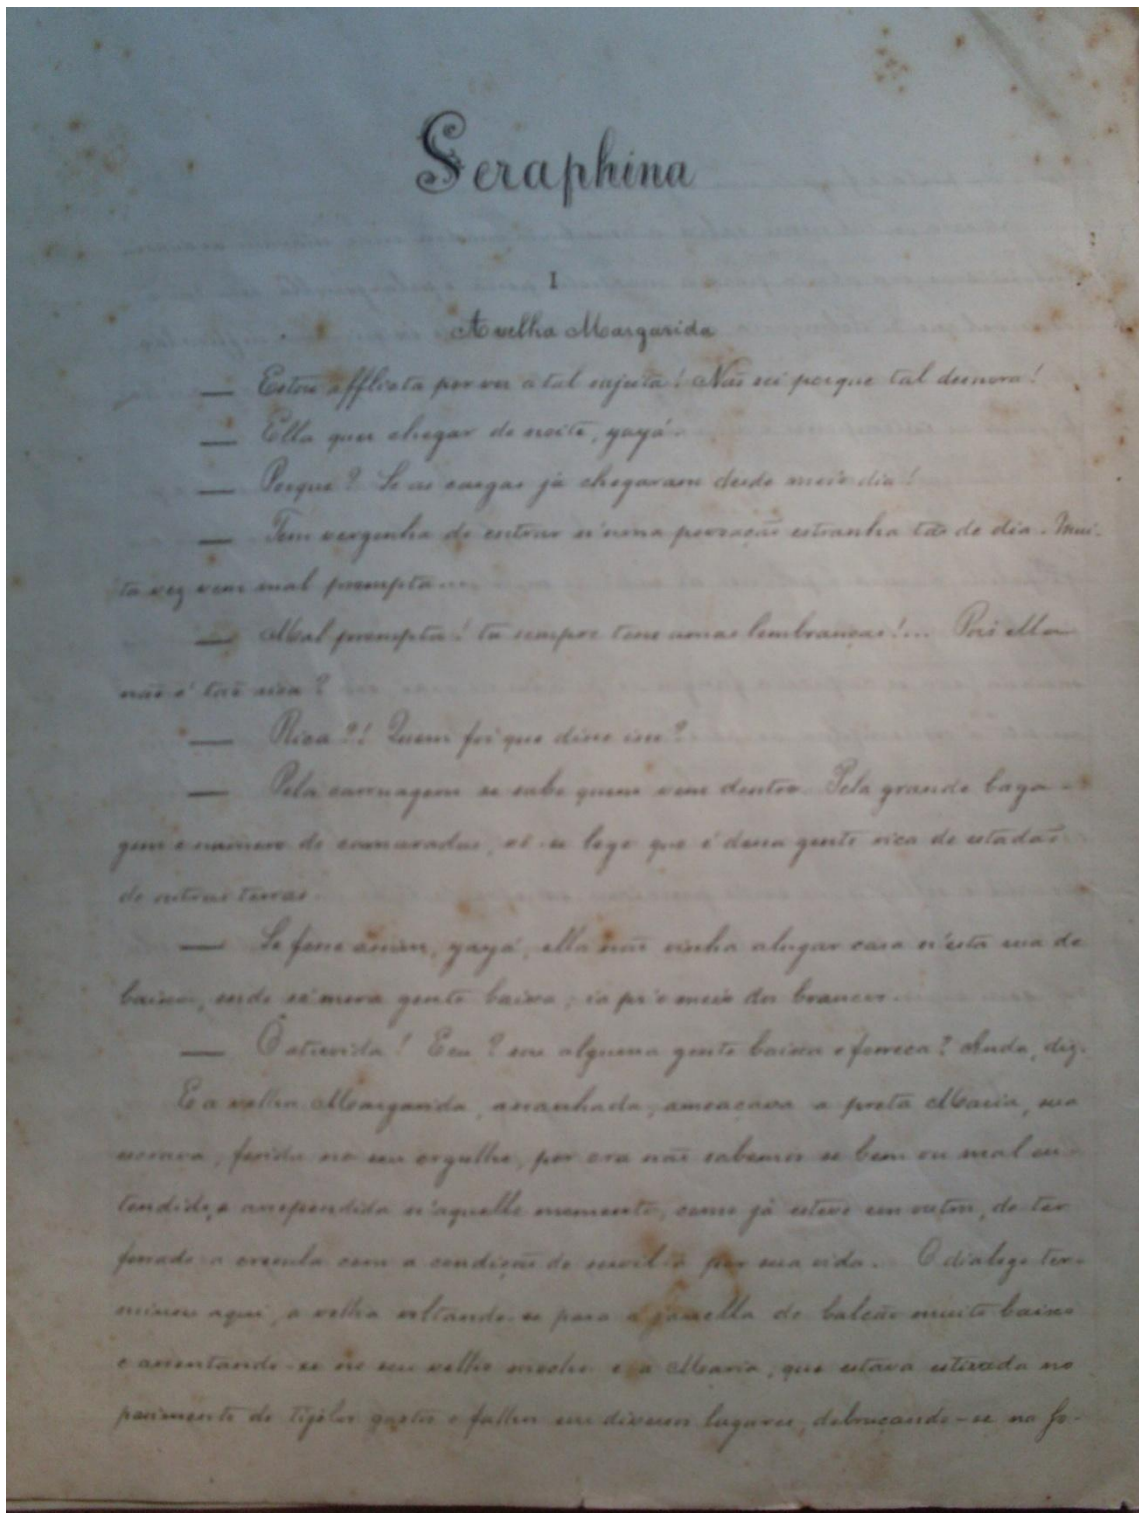 Seraphina
I
A velha Margarida
— Estou afflicta por ver a tal sujeita! Não sei porque tal demora!
— Ella quer chegar de noite, yayá.
— Porque? Se as cargas já chegaram desde meio dia!
— Tem vergonha de entrar n'uma povoação estranha tão de dia. Mui-
ta vez vem mal prompta....
— Mal prompta! tu sempre tens umas lembranças!... Pois ella
não é tão rica?
— Rica?! Quem foi que disse isso?
— Pela carruagem se sabe quem vem dentro. Pela grande baga-
gem e numero de camaradas, vê-se logo que é dessa gente rica de estadão
de outras terras.
— Se fosse assim, yayá, ella não vinha alugar casa n'esta rua de
baixo, onde só mora gente baixa; ia p'r'o meio dos brancos.
— Ó atrevida! Eu? sou alguma gente baixa e forreca? Anda, diz.
E a velha Margarida, assanhada, ameaçava a preta Maria, sua
escrava, ferida no seu orgulho, por ora não sabemos se bem ou mal en-
tendido, e arrependida n'aquelle momento, como já esteve em outro, de ter
forrado a creoula com a condição de servil-a por sua vida. O dialogo ter-
minou aqui, a velha voltando-se para a janella de balcão muito baixo
e assentando-se no seu velho mocho e a Maria, que estava estirada no
pavimento de tijolos gastos e falhos em diversos lugares, debruçando-se na fo-